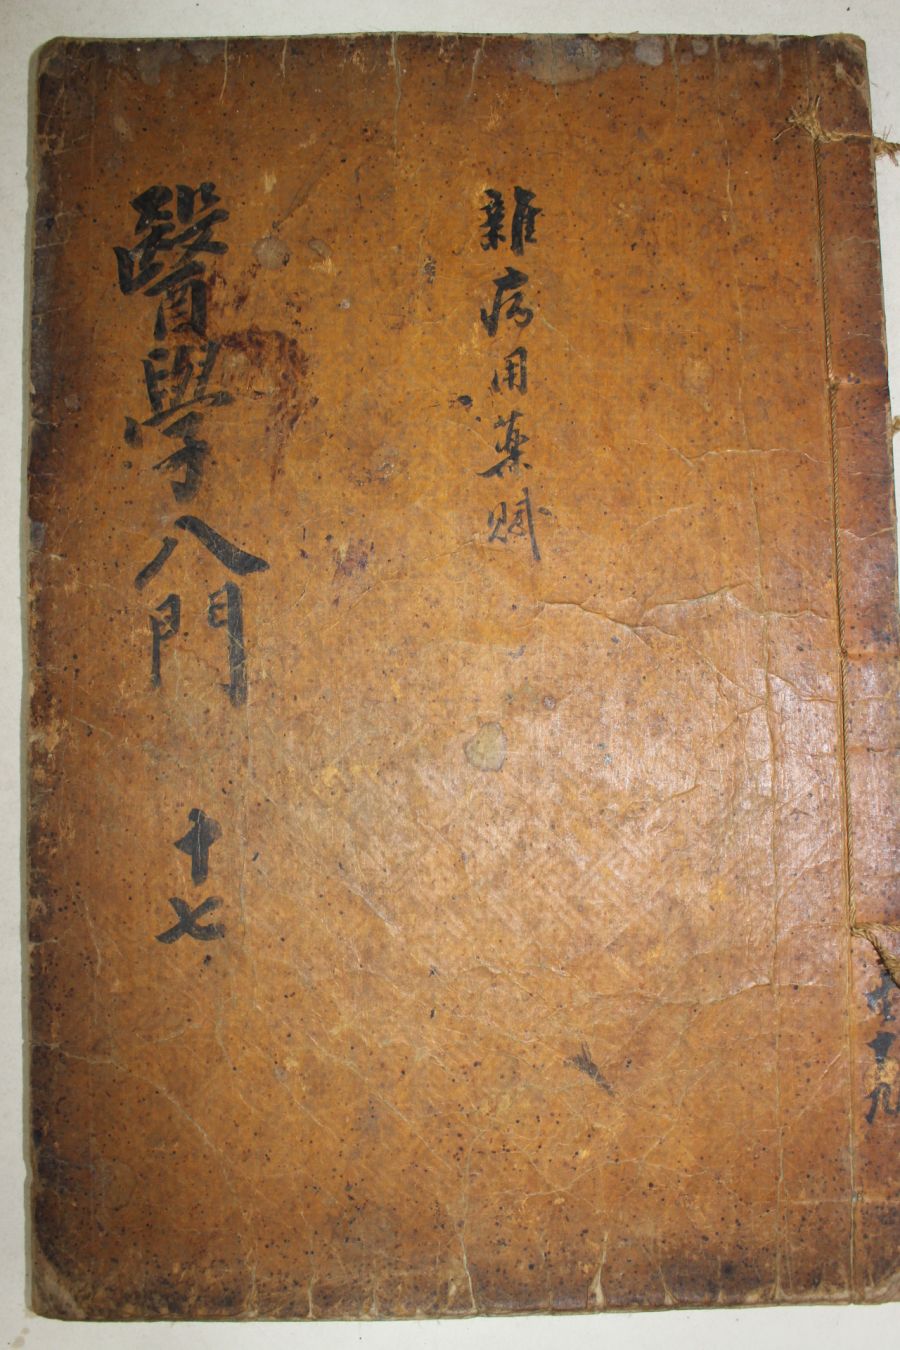 共十九
雜病用藥賦
醫學入門 十七